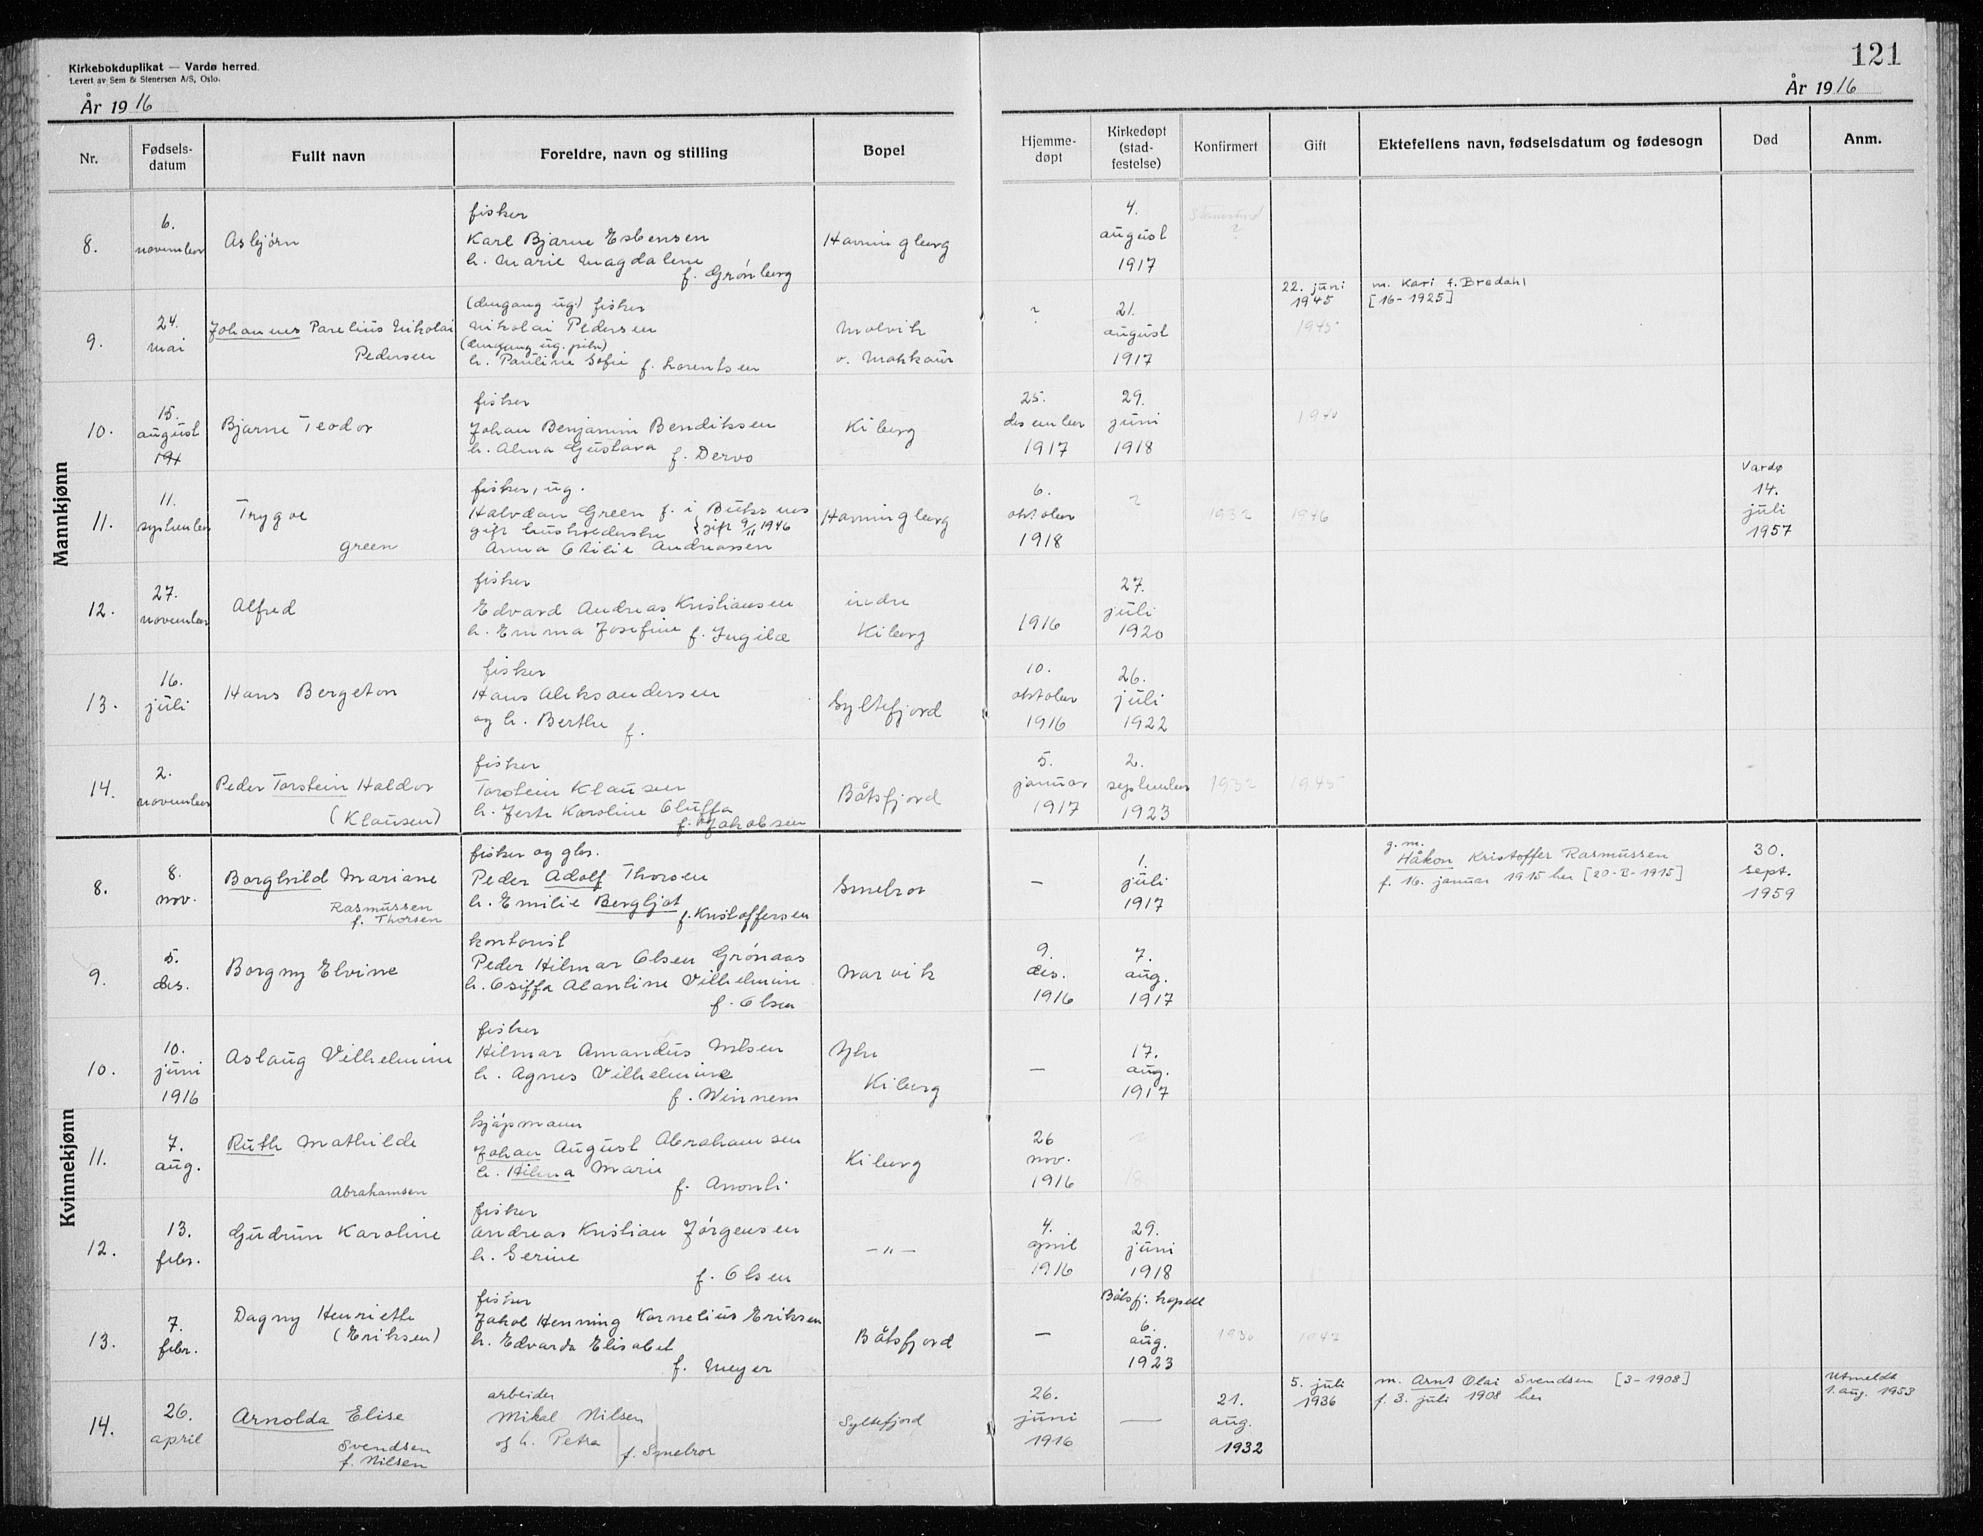 121
Kirkebokduplikat — Vardø herred.
Levert av Sem & Stenersen A/S, Oslo.
År 1916
År 1916
Nr.
Fødsels-
datum
Fullt navn
Foreldre, navn og stilling
Bopel
Hjemme-
døpt
Kirkedøpt
(stad-
festelse)
Konfirmert
Gift
Ektefellens navn, fødselsdatum og fødesogn
Død
Anm.
Mannkjønn
8.
6.
november
Asbjørn
fisker
Karl Bjarne Esbensen
h. Marie Magdalene
f. Grønberg
Havningberg
4.
august
1917
9.
24.
mai
Johannes Parelius Nikolai
Pedersen
(dengang ug.) fisker
Nikolai Pedersen
(dengang ug. pike)
h. Pauline Sofie f. Lorentsen
Molvik
v. Makkaur
?
21.
august
1917
22. juni
1945
1945
m. Kari f. Bredahl
[16-1925]
10.
15.
august
191
Bjarne Teodor
fisker
Johan Benjamin Bendiksen
h. Alma Gustava f. Dervo
Kiberg
25.
desember
1917
29.
juni
1918
1940
11.
11.
september
Trygve
Green
fisker, ug.
Halvdan Green f. i Buksnes
gift husholderske {gift 9/11 1946
Anna Otilie Andreassen
Havningberg
6.
oktober
1918
?
1932
1946
Vardø
14.
juli
1957
12.
27.
november
Alfred
fisker
Edvard Andreas Kristiansen
h. Emma Josefine f. Ingilæ
indre
Kiberg
1916
27.
juli
1920
13.
16.
juli
Hans Bergeton
fisker
Hans Aleksandersen
og h. Berthe f.
Syltefjord
10.
oktober
1916
26.
juli
1922
14.
2.
november
Peder Torstein Haldor
(Klausen)
fisker
Torstein Klausen
h. Karoline Oluffa
f. Jakobsen
Båtsfjord
5.
januar
1917
2.
september
1923
1932
1945
Kvinnekjønn
8.
8.
nov.
Borghild Mariane
Rasmussen
f. Thorsen
fisker og gbr.
Peder Adolf Thorsen
h. Emilie Bergljot
f. Kristoffersen
Smelror
—
1.
juli
1917
g. m.
Håkon Kristoffer Rasmussen
f. 16. januar 1915 her [20-B-1915]
30.
sept.
1959
9.
5.
des.
Borgny Elvine
kontorist
Peder Hilmar Olsen Grønaas
h. Osiffa Alantine Vilhelmine
f. Olsen
Narvik
9.
des.
1916
7.
aug.
1917
10.
10.
juni
1916
Aslaug Vilhelmine
fisker
Hilmar Amandus Nilsen
h. Agnes Vilhelmine
f. Winnem
Ytre
Kiberg
—
17.
aug.
1917
11.
7.
aug.
Ruth Mathilde
Abrahamsen
kjøpmann
Johan August Abrahamsen
h. Hilma Marie
f. Anonli
Kiberg
26
nov.
1916
?
18
12.
13.
febr.
Gudrun Karoline
fisker
Andreas Kristian Jørgensen
h. Serine
f. Olsen
— " —
4.
april
1916
29.
juni
1918
13.
7.
febr.
Dagny Henriette
(Eriksen)
fisker
Jakob Henning Kornelius Eriksen
h. Edvarda Elisabet
f. Meyer
Båtsfjord
—
Båtsfj. kapell
6.
aug.
1923
1930
1947
14.
26.
april
Arnolda Elise
Svendsen
f. Nilsen
arbeider
Mikal Nilsen
og h. Petra
f. Smelror
Syltefjord
26.
juni
1916
—
21.
aug.
1932
5. juli
1936
m. Arnt Olai Svendsen [3-1908]
f. 3. juli 1908 her
Utmeldt
1. aug. 1953